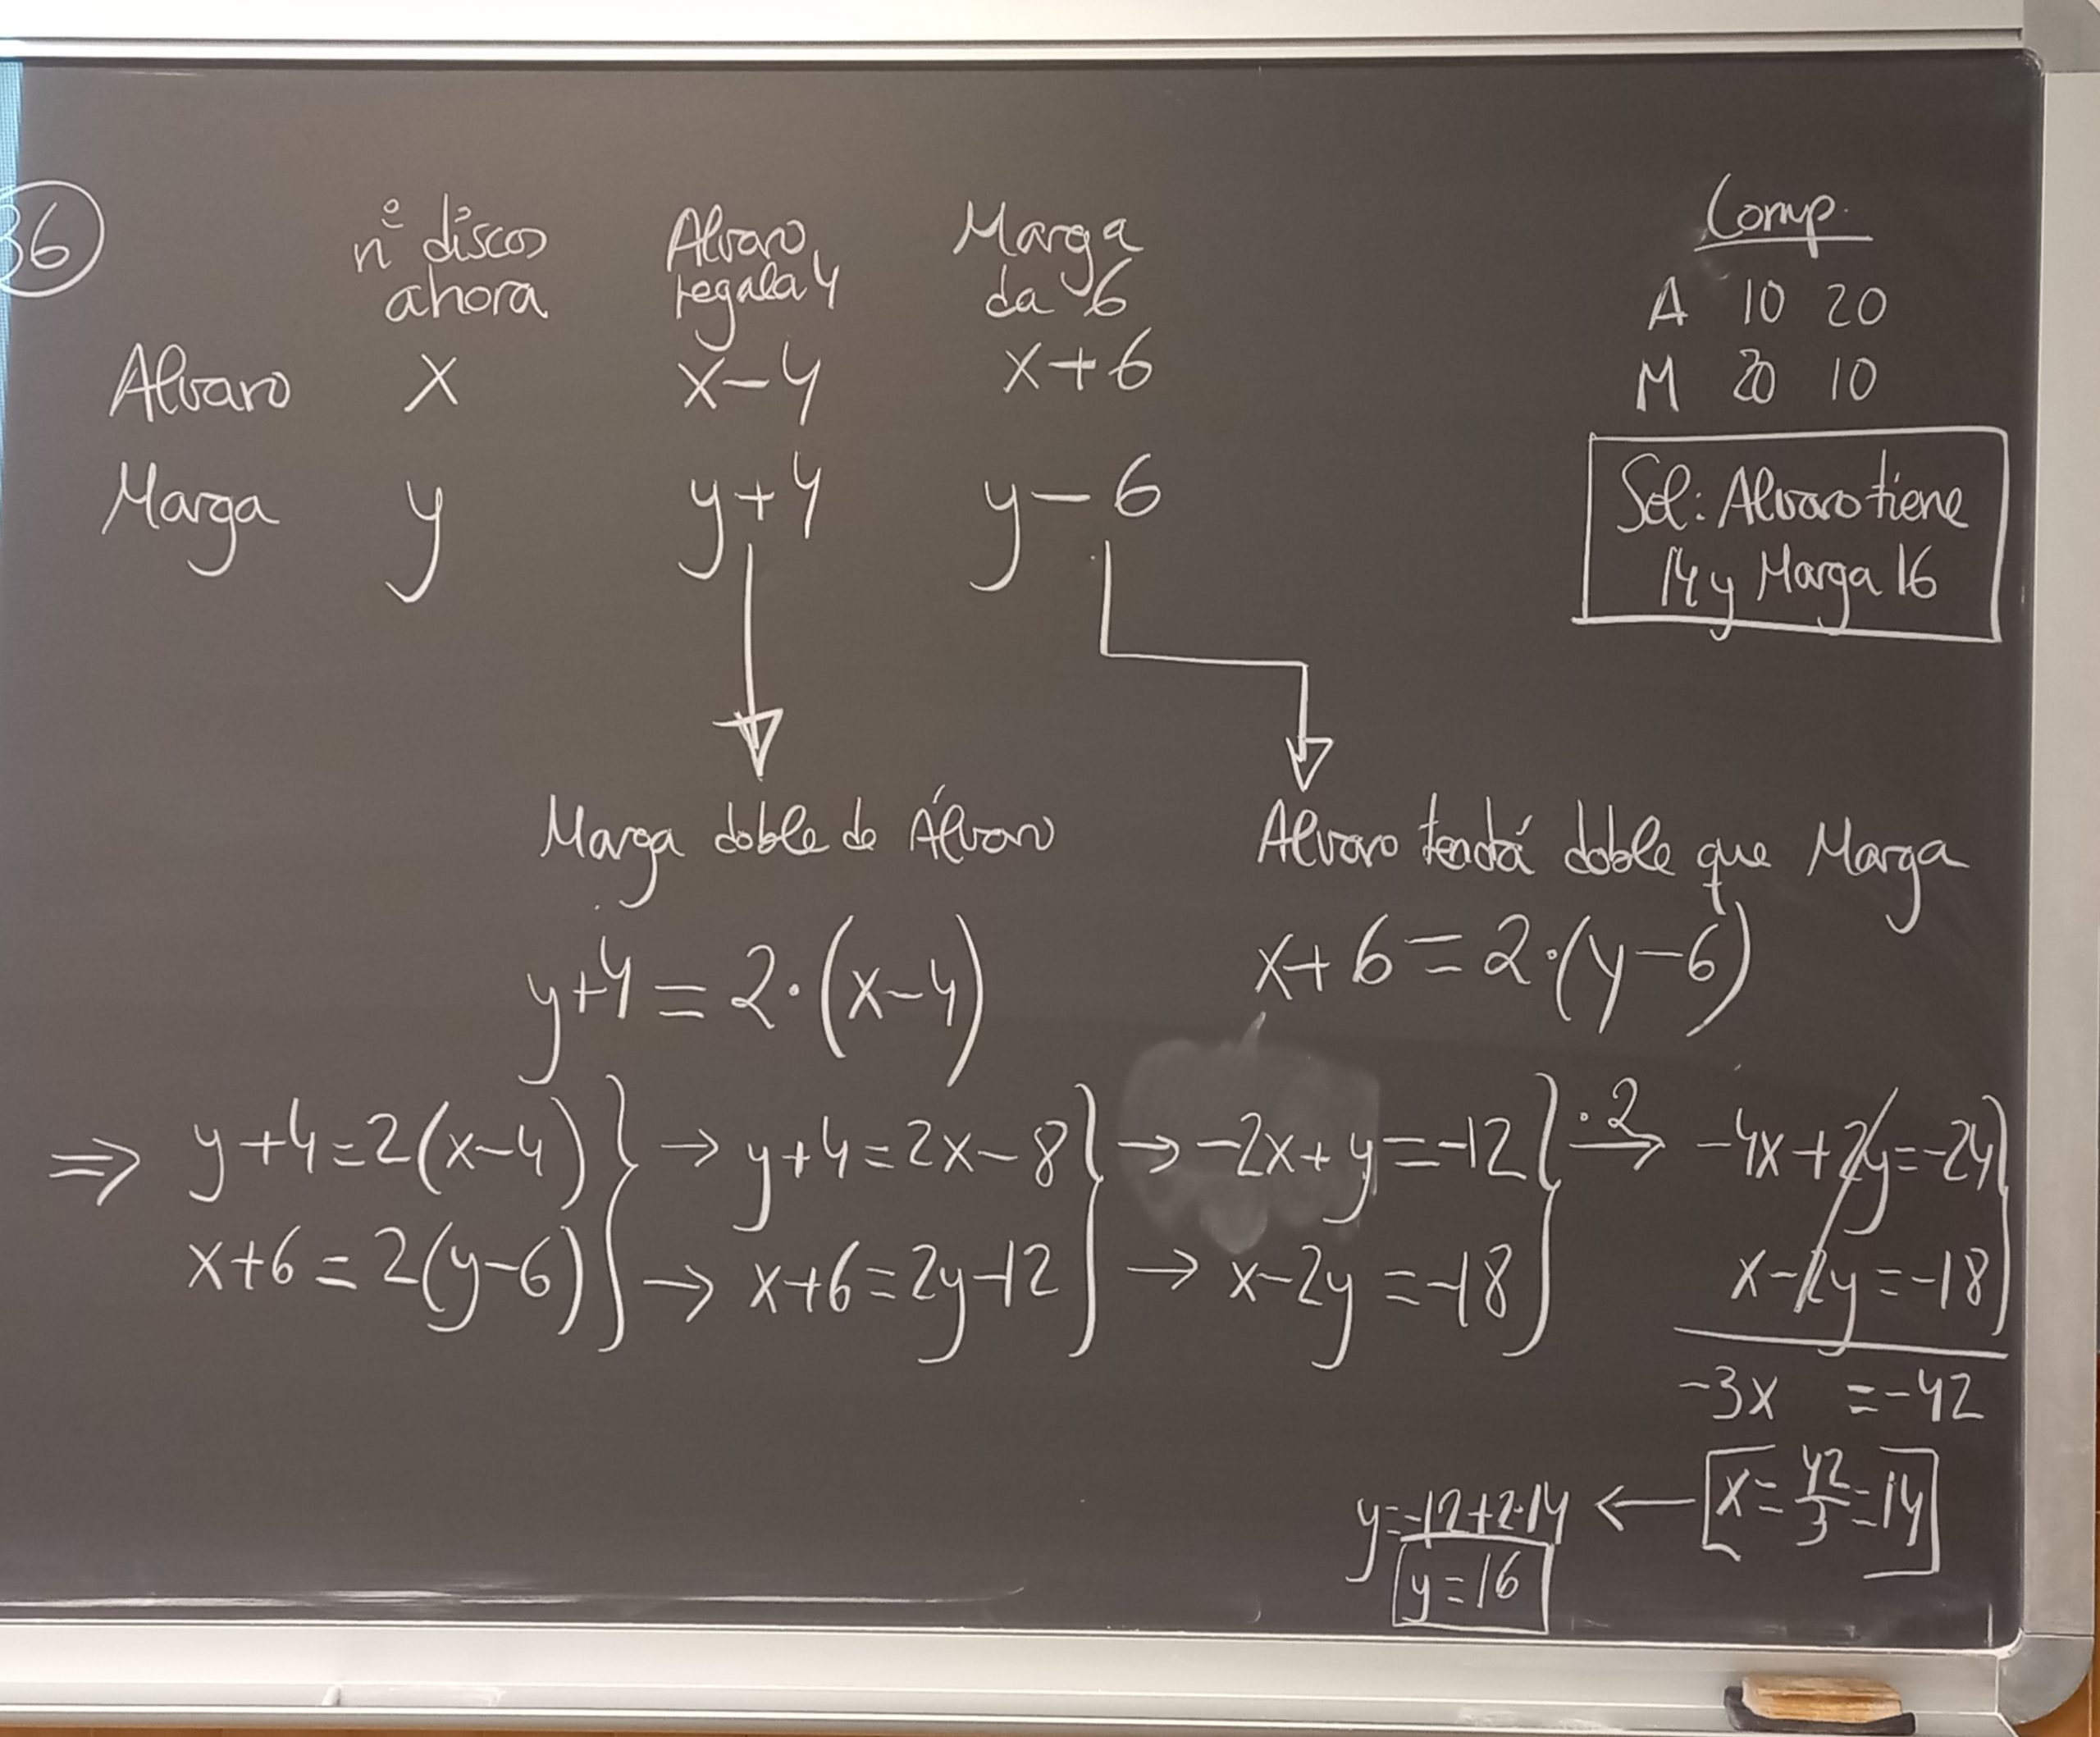 36
nº discos ahora
Alvaro regala 4
Marga da 6
Alvaro x x-4 x+6
Marga y y+4 y-6
Comp.
A 10 20
M 20 10
Sol: Alvaro tiene
14 y Marga 16
Marga doble de Álvaro
y+4 = 2·(x-4)
Alvaro tendá doble que Marga
x+6 = 2·(y-6)
⇒ y+4=2(x-4) } → y+4=2x-8 } → -2x+y=-12 } ·2 → -4x+2y=-24 }
x+6=2(y-6) } → x+6=2y-12 } → x-2y=-18 } x-2y=-18 }
-3x =-42
x=42/3=14
← y=-12+2·14
y=16